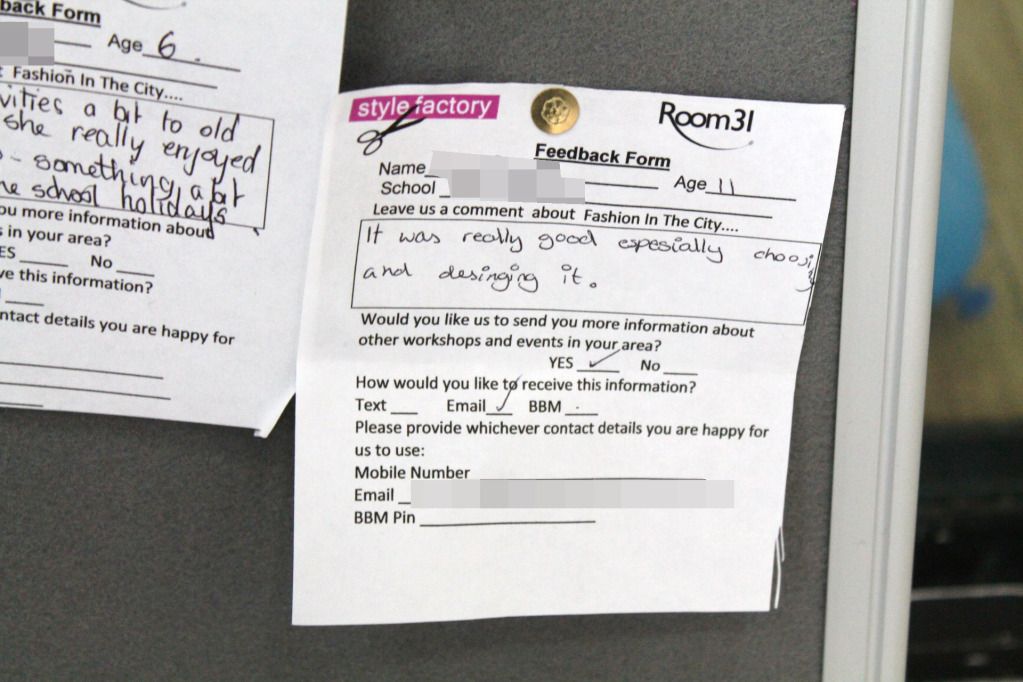 back Form
Age 6.
Fashion In The City....
vities a bit to old
she really enjoyed
- something a bit
he school holidays
ou more information about
s in your area?
ES ____ No ____
ve this information?
ntact details you are happy for
style factory
Room31
Feedback Form
Name
Age 11
School
Leave us a comment about Fashion In The City....
It was really good espesially choosing
and desinging it.
Would you like us to send you more information about
other workshops and events in your area?
YES ✓ No ____
How would you like to receive this information?
Text ____ Email ✓ BBM ____
Please provide whichever contact details you are happy for
us to use:
Mobile Number
Email
BBM Pin